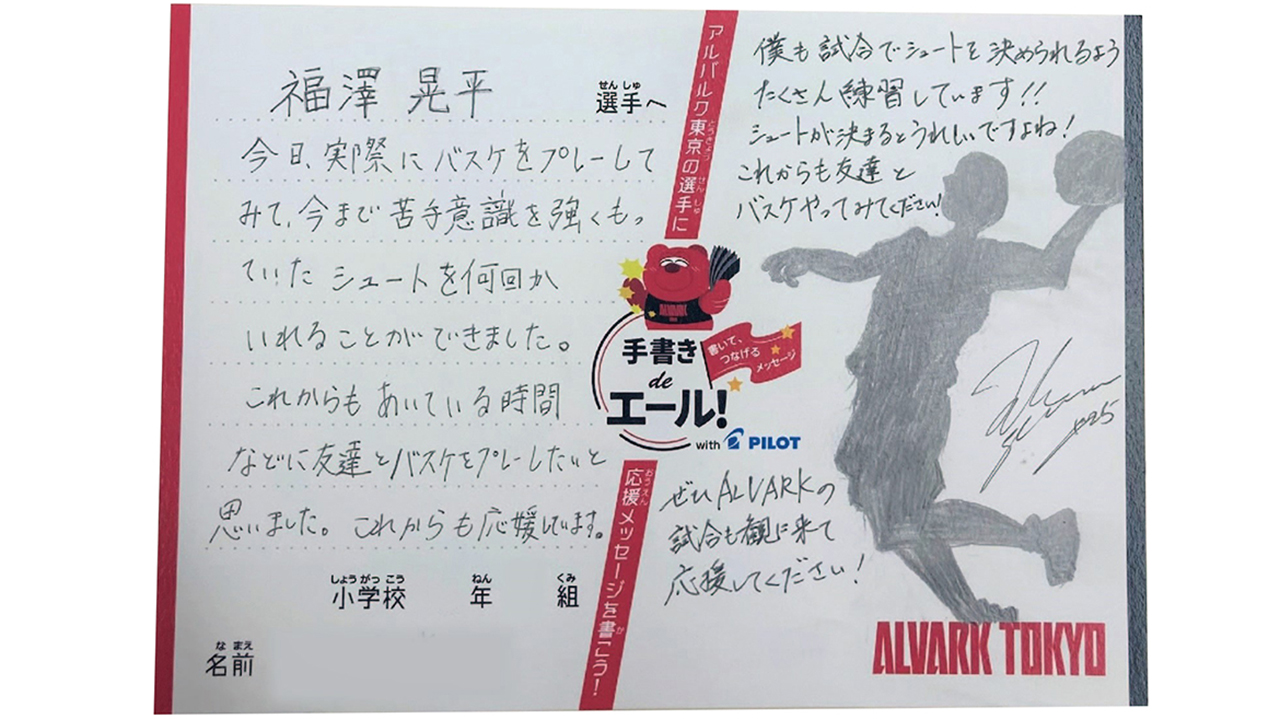 福澤 晃平 選手へ
せんしゅ
今日、実際にバスケをプレーして
みて、今まで苦手意識を強くもっ
ていた シュートを何回か
いれることができました。
これからも あいている時間
などに友達とバスケをプレーしたいと
思いました。これからも応援しています。
しょうがっこう ねん くみ
小学校 年 組
なまえ
名前
アルバルク東京の選手に
とうきょう せんしゅ
ALVARK
手書き
de
エール!
書いて、
つなげる
メッセージ
with PILOT
おうえん か
応援メッセージを書こう!
僕も試合でシュートを決められるよう
たくさん練習しています!!
シュートが決まるとうれしいですよね!
これからも友達と
バスケやってみてください!
ぜひALVARKの
試合も観に来て
応援してください!
#25
ALVARK TOKYO